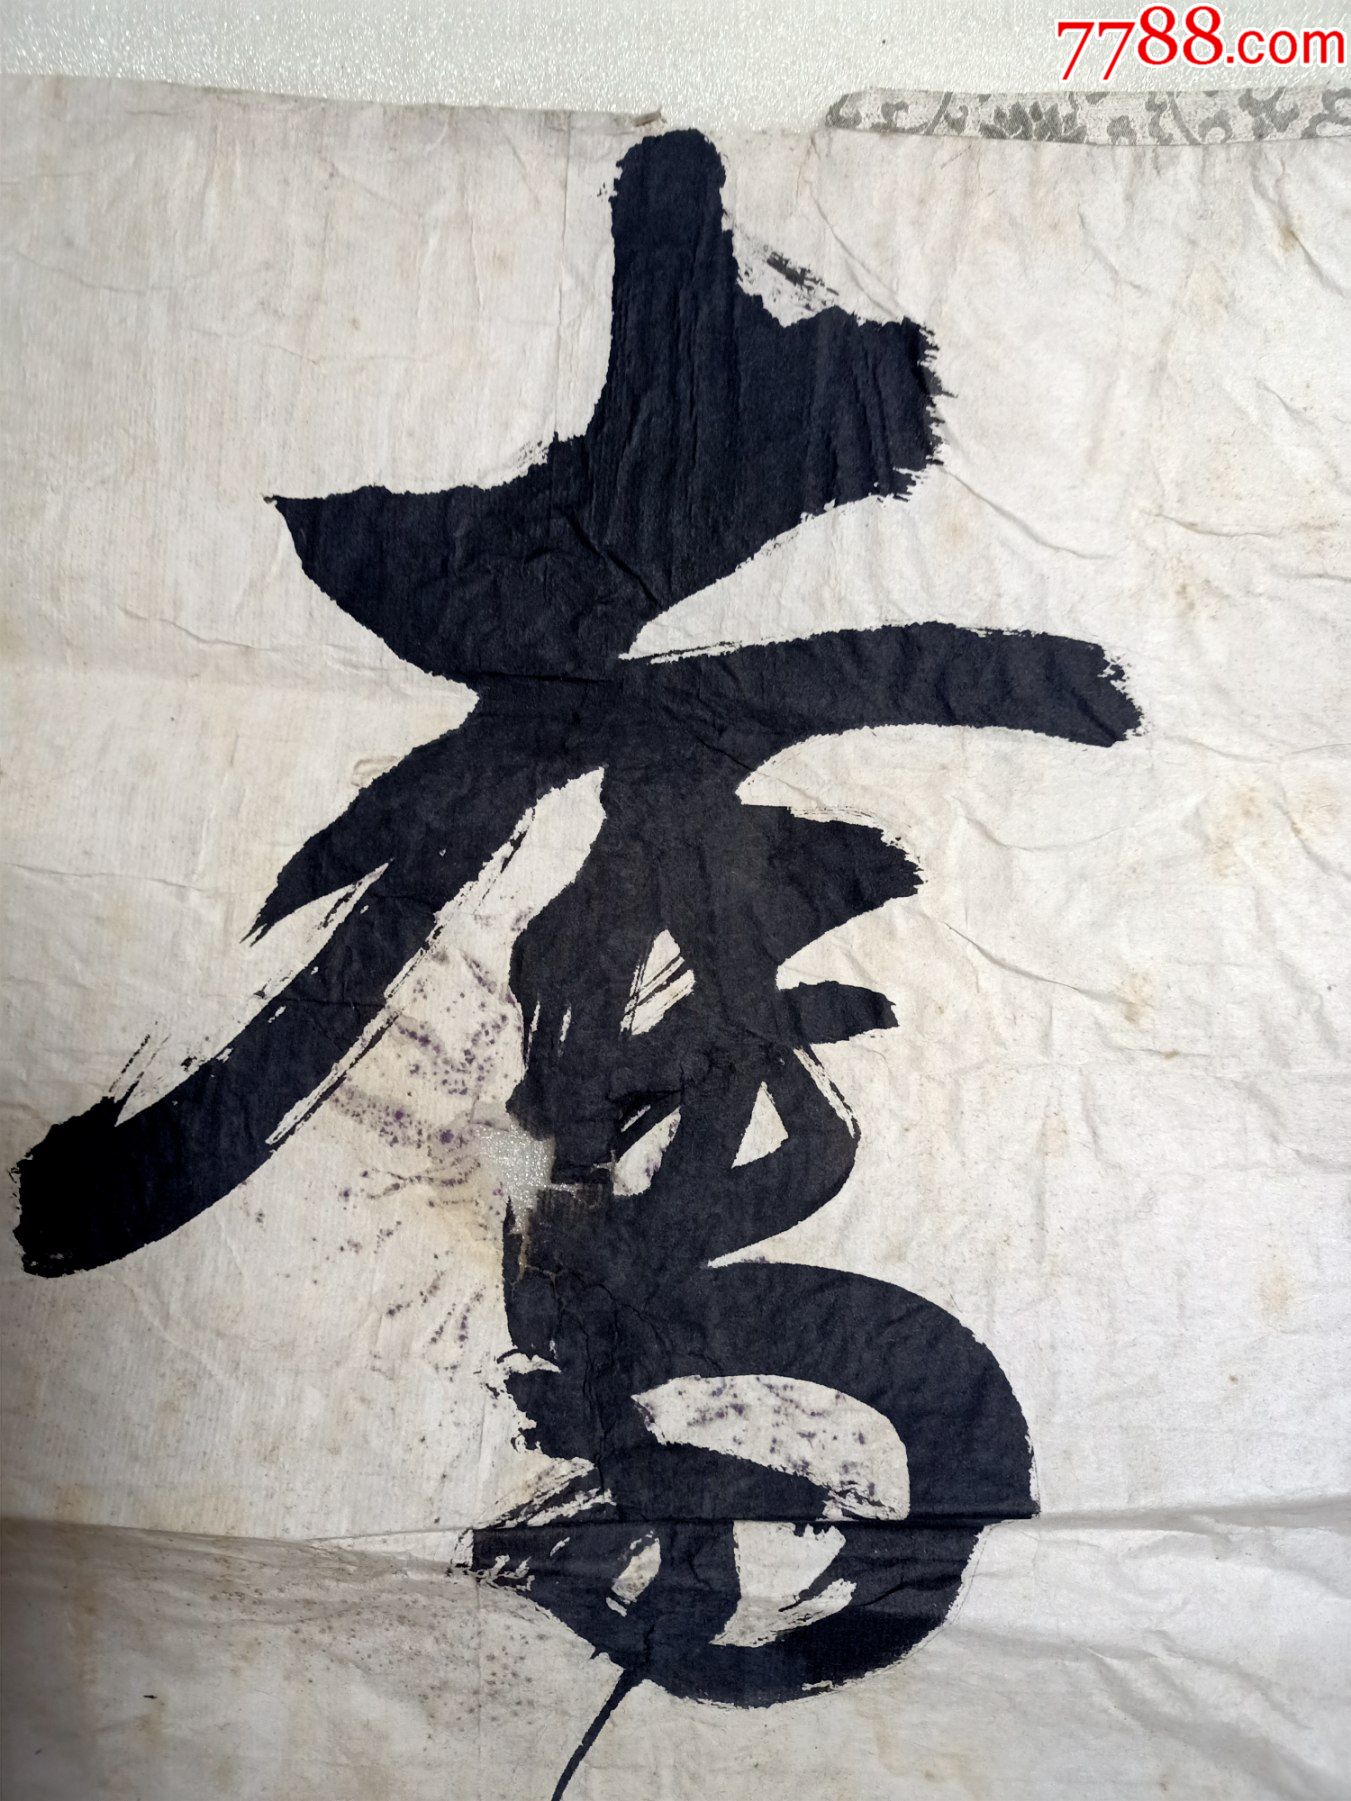 7788.com
奮